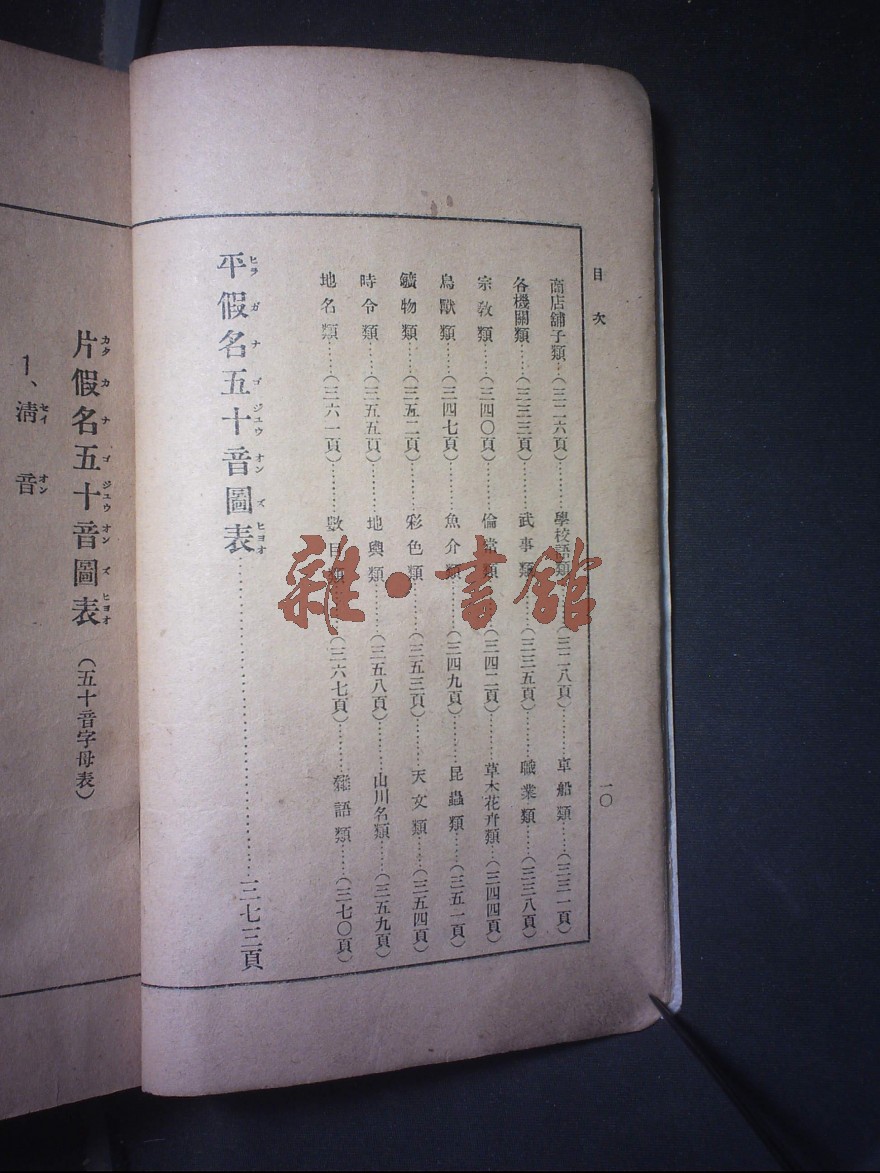 目次
一〇
商店舖子類…(三二六頁)………學校語類…(三二八頁)………車船類…(三三一頁)
各機關類…(三三三頁)………武事類…(三三五頁)………職業類…(三三八頁)
宗敎類…(三四〇頁)………倫常類…(三四二頁)………草木花卉類…(三四四頁)
鳥獸類…(三四七頁)………魚介類…(三四九頁)………昆蟲類…(三五一頁)
鑛物類…(三五二頁)………彩色類…(三五三頁)………天文類…(三五四頁)
時令類…(三五五頁)………地輿類…(三五八頁)………山川名類…(三五九頁)
地名類…(三六一頁)………數目類…(三六七頁)………雜語類…(三七〇頁)
平假名五十音圖表………三七三頁
ヒラガナゴジユウオンズヒヨオ
片假名五十音圖表(五十音字母表)
カタカナゴジユウオンズヒヨオ
1、淸音
セイオン
雜·書館